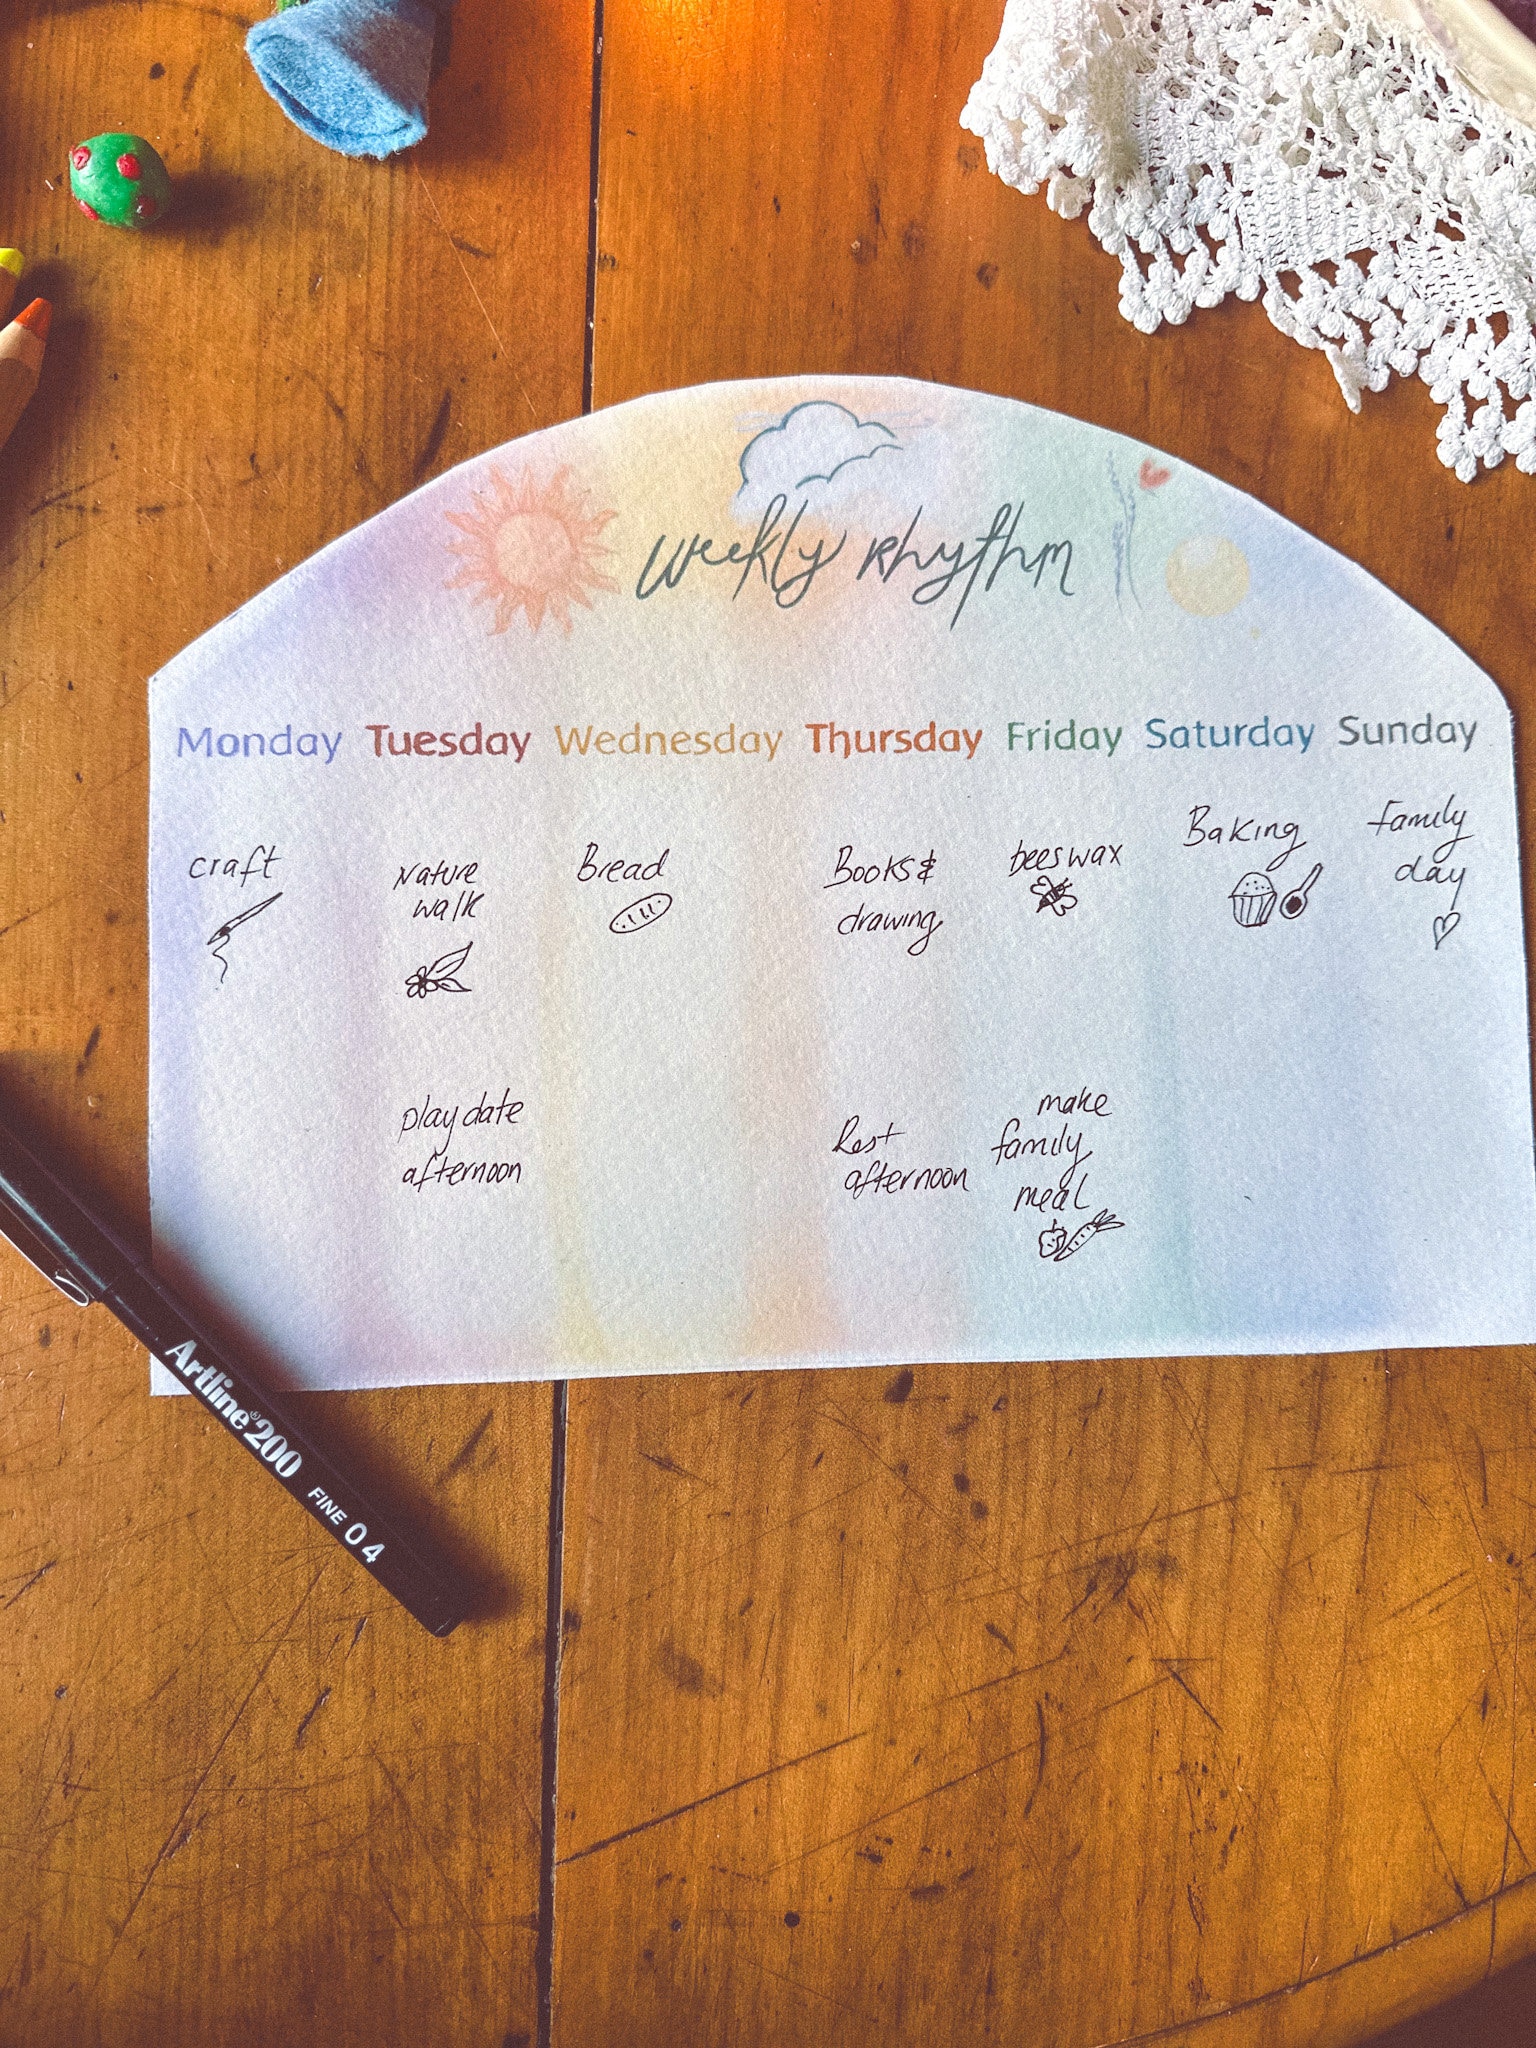 Weekly Rhythm
Monday Tuesday Wednesday Thursday Friday Saturday Sunday
craft
Nature
walk
playdate
afternoon
Bread
Books &
drawing
Rest
afternoon
beeswax
make
family
meal
Baking
family
day
Artline® 200 FINE 0.4